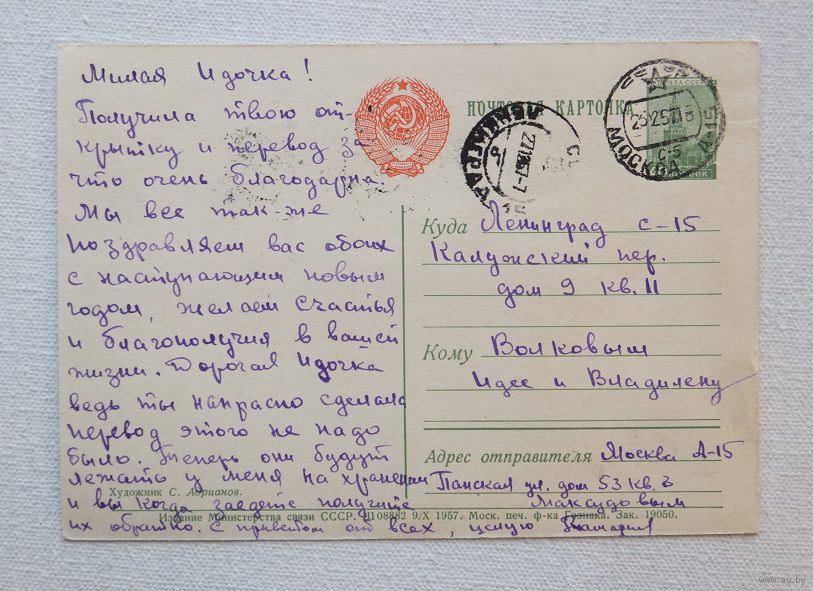 Милая Идочка!
Получила твою от-
крытку и перевод за
что очень благодарна.
Мы все так-же
поздравляем вас обоих
с наступающим новым
годом, желаем счастья
и благополучия в вашей
жизни. Дорогая Идочка
ведь ты напрасно сделала
перевод этого не надо
было. Теперь они будут
лежать у меня на хранении
и вы когда заедете получите
их обратно. С приветом от всех, целую
Художник С. Адрианов.
Издание Министерства связи СССР. Ш08882 9/X 1957. Моск. печ. ф-ка Гознака. Зак. 19050.
ПОЧТОВАЯ КАРТОЧКА
ПОЧТА СССР
МОСКВА А-15
ЛЕНИНГРАД
Куда Ленинград с-15
Калужский пер.
дом 9 кв. 11
Кому Волковым
Идее и Владилену
Адрес отправителя Москва А-15
ул. дом 53 кв. 3
Максудовым
www.ay.by